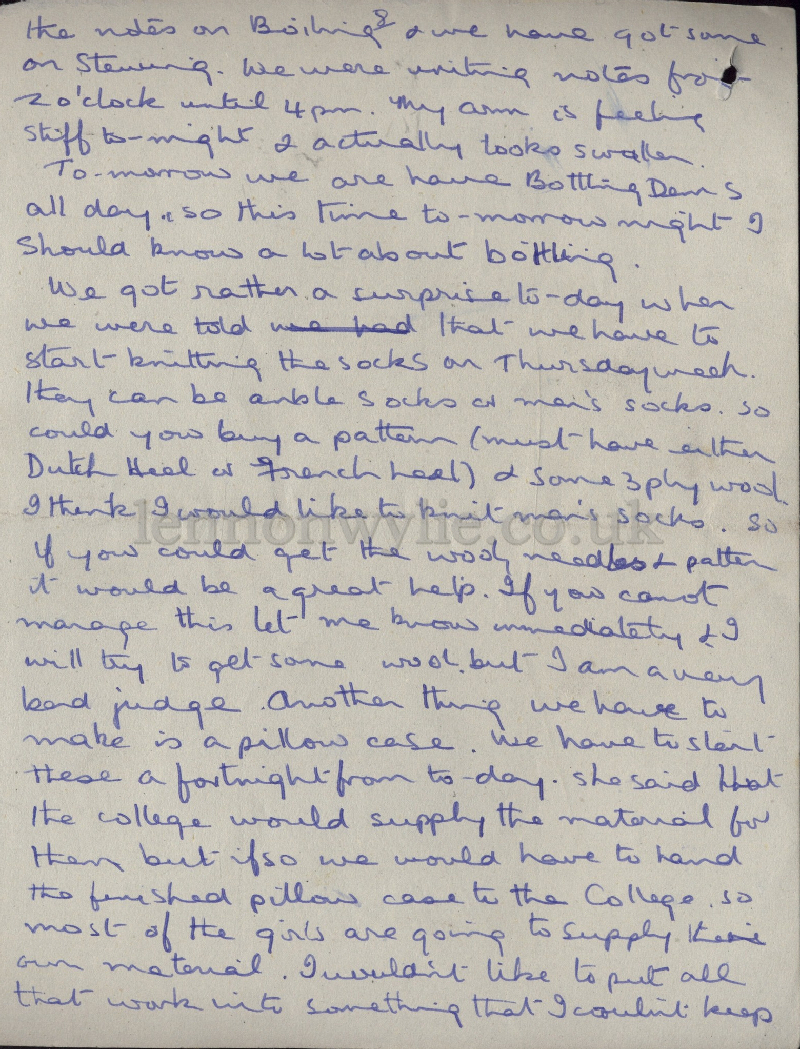 the notes on Boiling & we have got some
on Stewing. We were writing notes from
2 o'clock until 4 pm. My arm is feeling
stiff to-night & actually looks swollen.
To-morrow we are have Bottling Dems
all day, so this time to-morrow night I
Should know a lot about bottling.
We got rather a surprise to-day when
we were told we had that we have to
start knitting the socks on Thursday week.
They can be ankle socks or men's socks. so
could you buy a pattern (must have either
Dutch Heel or French heel) & some 3 ply wool.
I think I would like to knit men's socks. so
lennonwylie.co.uk
if you could get the wool, needles & pattern
it would be a great help. If you cannot
manage this let me know immediately & I
will try to get some wool. but I am a very
bad judge. Another thing we have to
make is a pillow case. We have to start
these a fortnight from to-day. She said that
the college would supply the material for
them but if so we would have to hand
the finished pillow case to the College. so
most of the girls are going to supply their
own material. I wouldn't like to put all
that work into something that I couldn't keep